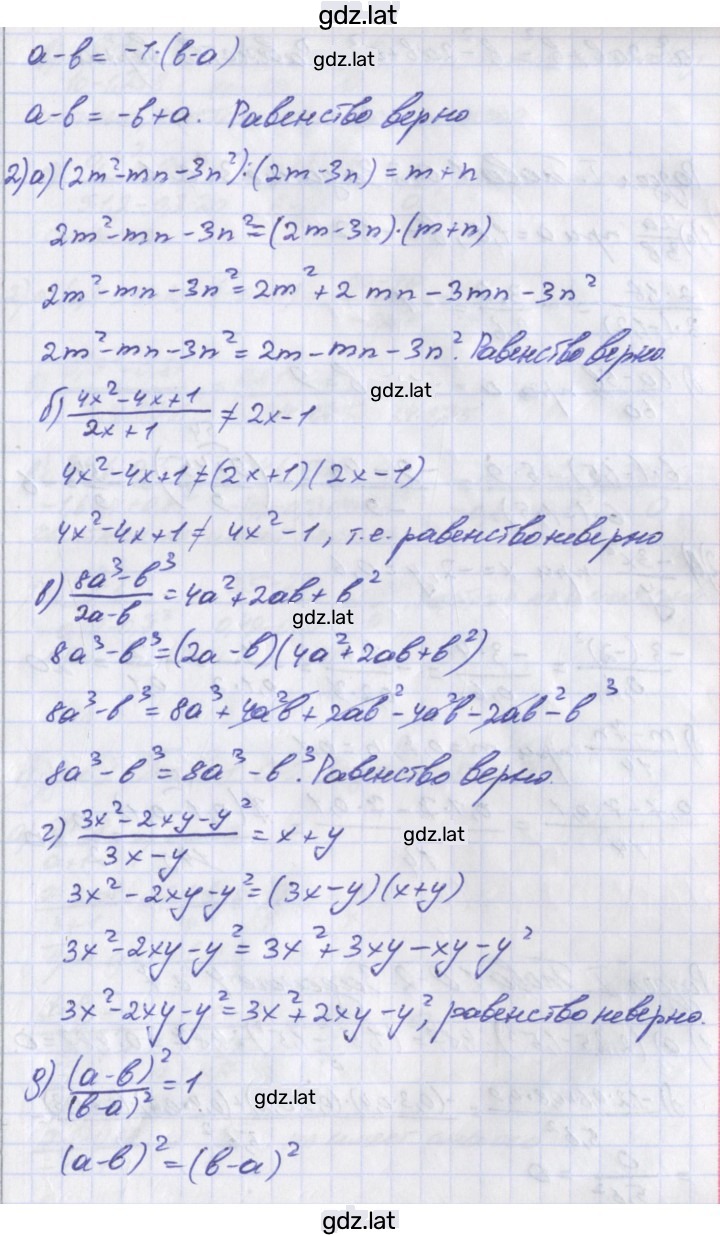 gdz.lat
a-b = -1·(b-a)
gdz.lat
a-b = -b+a. Равенство верно
2)а) (2m²-mn-3n²):(2m-3n) = m+n
2m²-mn-3n²=(2m-3n)·(m+n)
2m²-mn-3n²=2m²+2mn-3mn-3n²
2m²-mn-3n²=2m-mn-3n². Равенство верно.
gdz.lat
б) (4x²-4x+1)/(2x+1) ≠ 2x-1
4x²-4x+1≠(2x+1)(2x-1)
4x²-4x+1≠ 4x²-1, т.е. равенство неверно
в) (8a³-b³)/(2a-b) = 4a²+2ab+b²
gdz.lat
8a³-b³=(2a-b)(4a²+2ab+b²)
8a³-b³=8a³+4a²b+2ab²-4a²b-2ab²-b³
8a³-b³=8a³-b³. Равенство верно.
г) (3x²-2xy-y²)/(3x-y) = x+y
gdz.lat
3x²-2xy-y²=(3x-y)(x+y)
3x²-2xy-y²=3x²+3xy-xy-y²
3x²-2xy-y²=3x²+2xy-y², равенство неверно.
д) (a-b)²/(b-a)² = 1
gdz.lat
(a-b)²=(b-a)²
gdz.lat